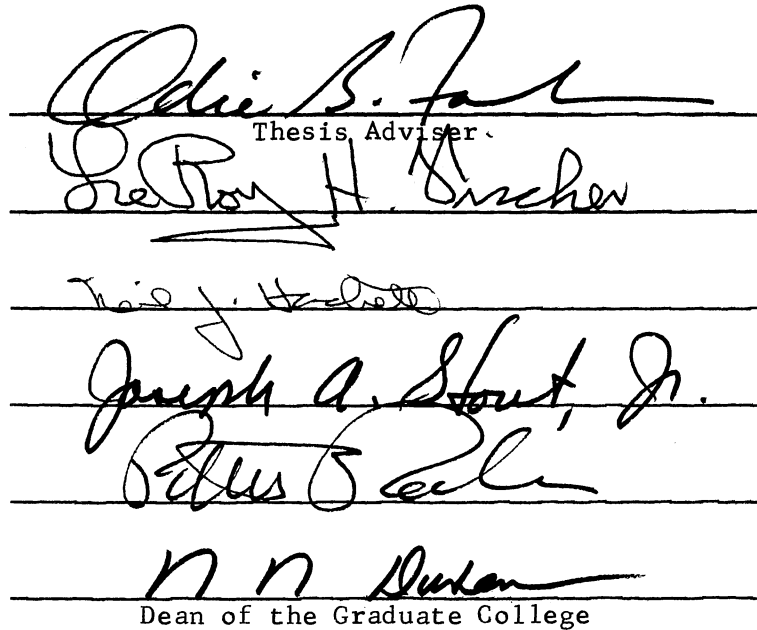 Odie B. Faulk
Thesis Adviser
LeRoy H. Fischer
Neil J. Hackett
Joseph A. Stout, Jr.
N N Durham
Dean of the Graduate College